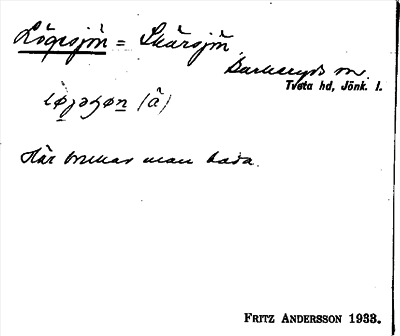 Lögesjön = Skärsjön.
Barkeryds sn.
Tveta hd, Jönk. l.
(â)
Här brukar man bada.
FRITZ ANDERSSON 1933.